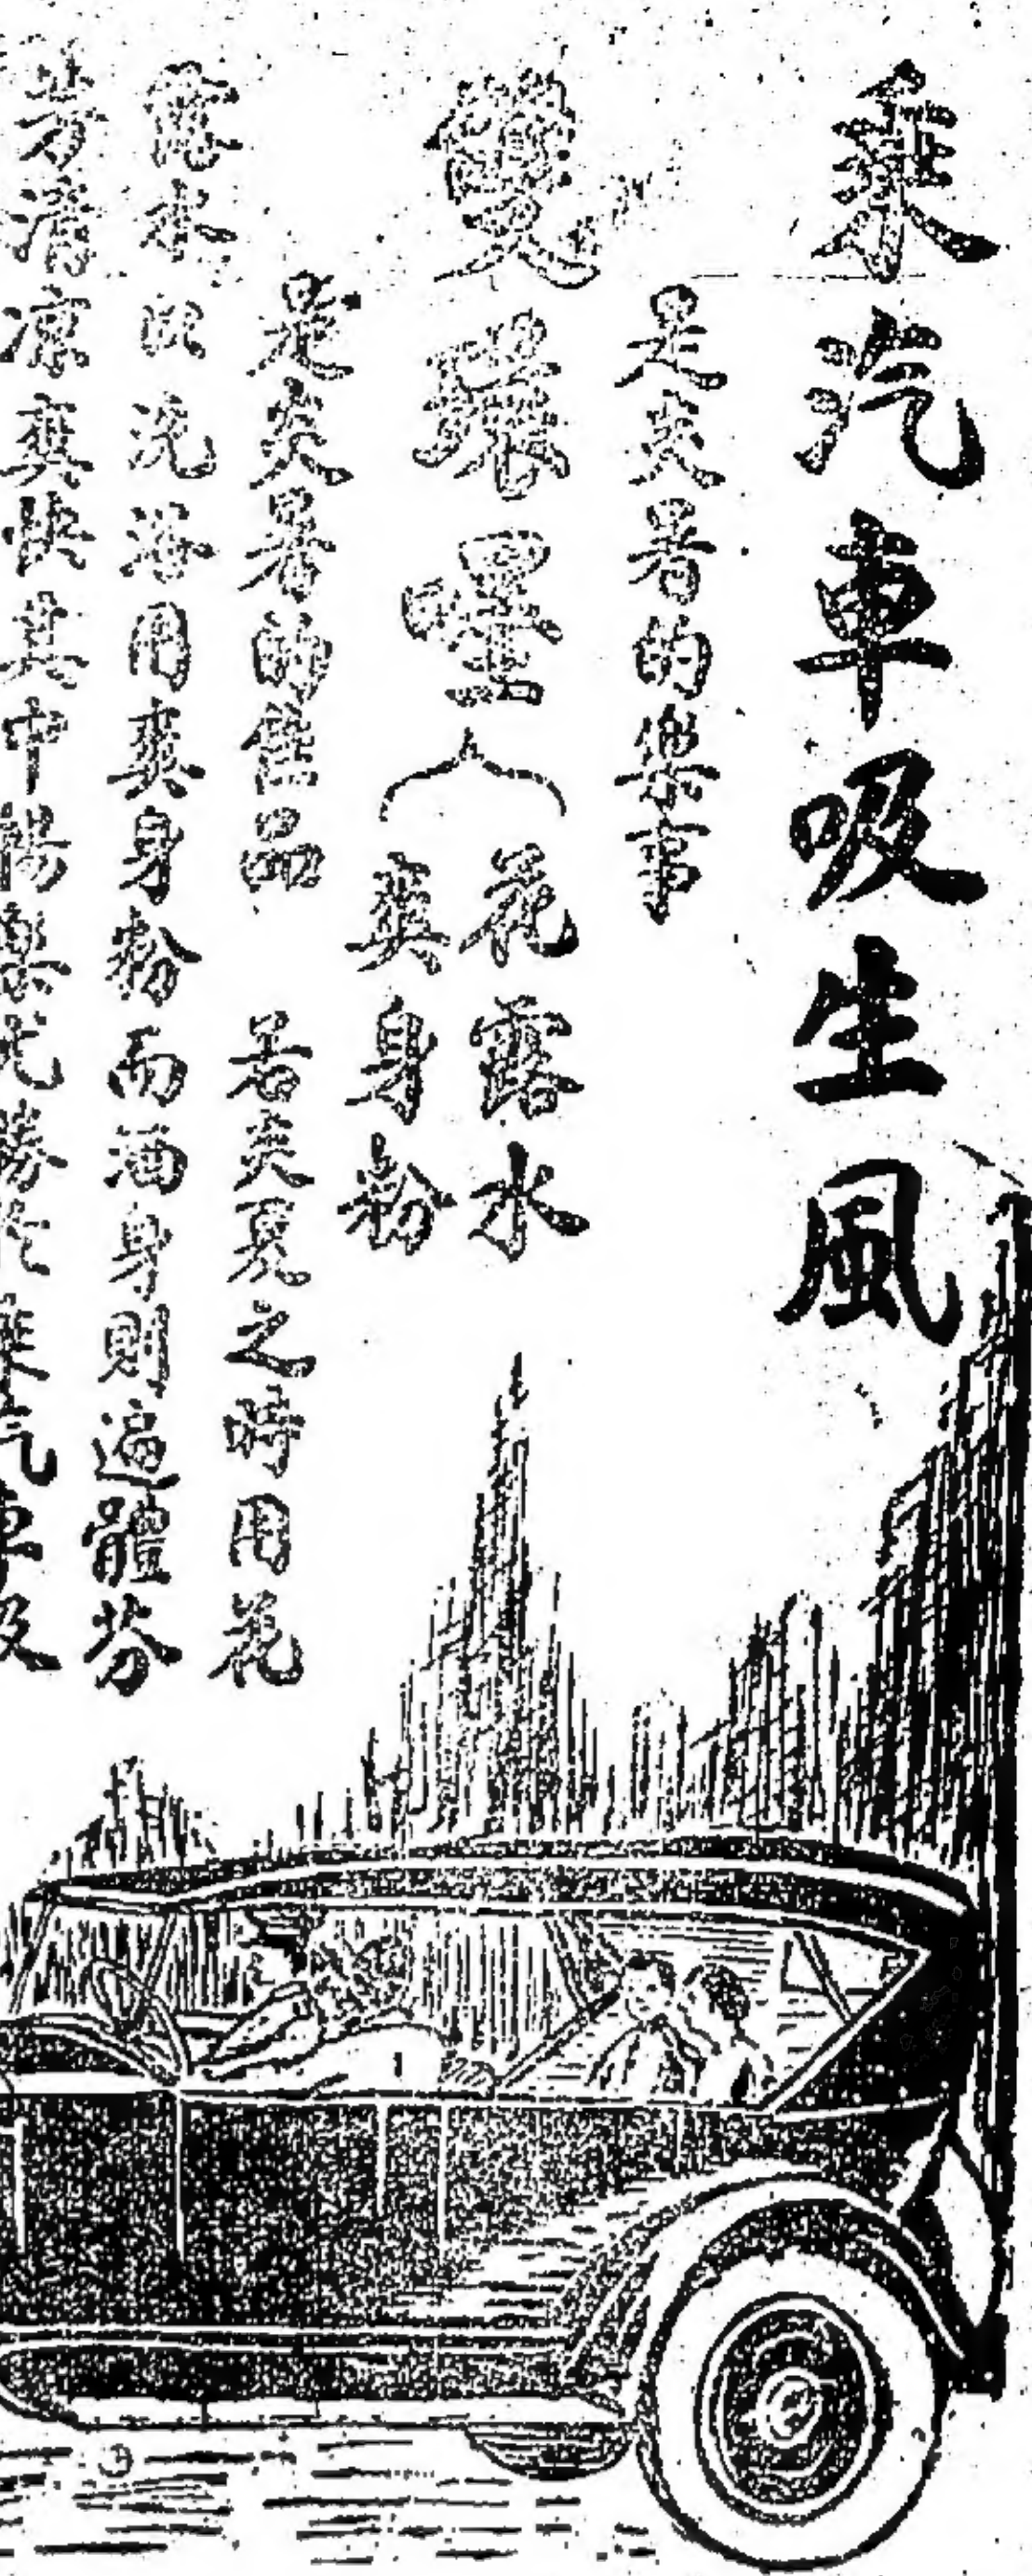 乘汽車吸生風
是炎暑的樂事
雙嚜
花露水
爽身粉
是炎暑的佳品 若炎夏之時用花
露水以洗浴用爽身粉而洒身則遍體芬
芳清凉爽快其中暢樂尤勝於乘汽車吸